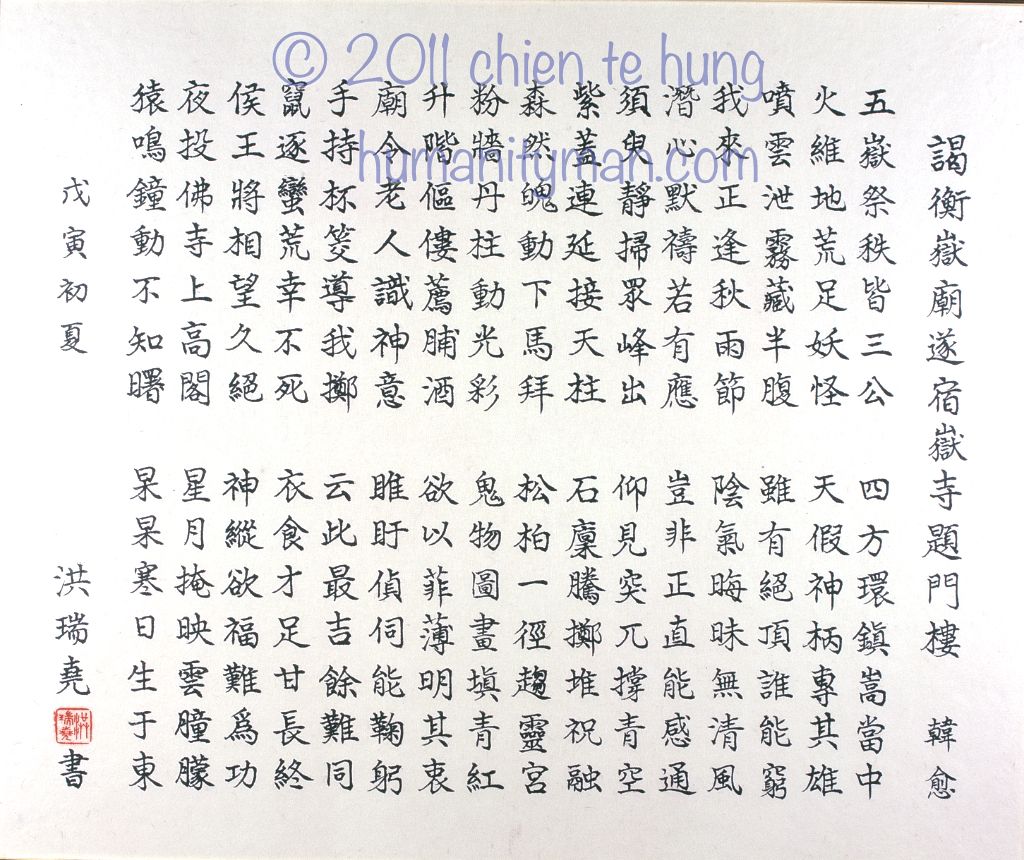 © 2011 chien te hung
humanityman.com
謁衡嶽廟遂宿嶽寺題門樓 韓愈
五嶽祭秩皆三公 四方環鎮嵩當中
火維地荒足妖怪 天假神柄專其雄
噴雲泄霧藏半腹 雖有絕頂誰能窮
我來正逢秋雨節 陰氣晦昧無清風
潛心默禱若有應 豈非正直能感通
須臾靜掃眾峰出 仰見突兀撐青空
紫蓋連延接天柱 石廩騰擲堆祝融
森然魄動下馬拜 松柏一徑趨靈宮
粉牆丹柱動光彩 鬼物圖畫填青紅
升階傴僂薦脯酒 欲以菲薄明其衷
廟令老人識神意 睢盱偵伺能鞠躬
手持杯筊導我擲 云此最吉餘難同
竄逐蠻荒幸不死 衣食才足甘長終
侯王將相望久絕 神縱欲福難爲功
夜投佛寺上高閣 星月掩映雲朣朦
猿鳴鐘動不知曙 杲杲寒日生于東
戊寅初夏 洪瑞堯 書
洪瑞堯